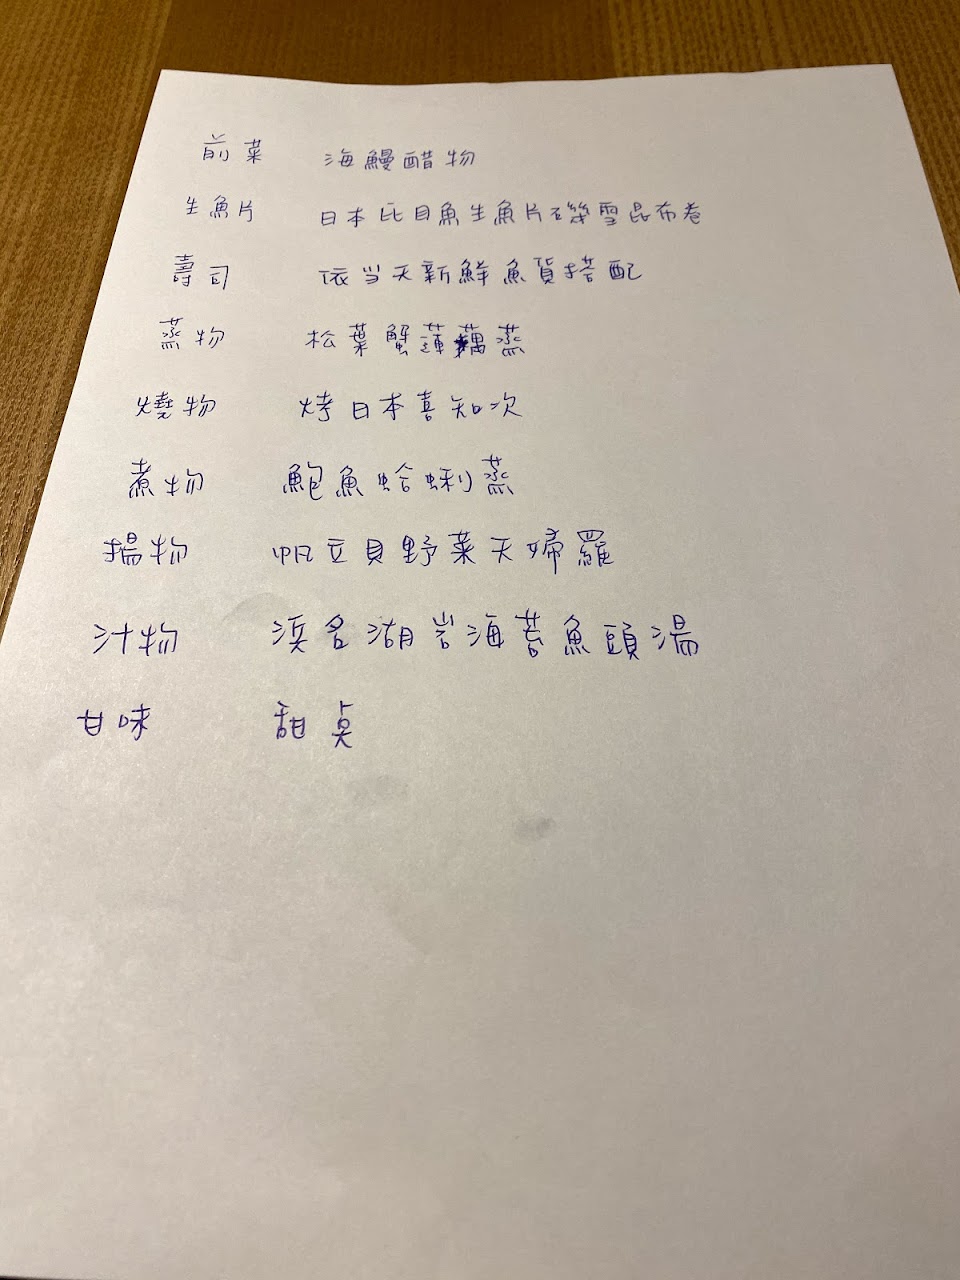 前菜 海鰻醋物
生魚片 日本比目魚生魚片磯雪昆布卷
壽司 依当天新鮮魚貨搭配
蒸物 松葉蟹蓮藕蒸
燒物 烤日本喜知次
煮物 鮑魚蛤蜊蒸
揚物 帆立貝野菜天婦羅
汁物 浜名湖岩海苔魚頭湯
甘味 甜点